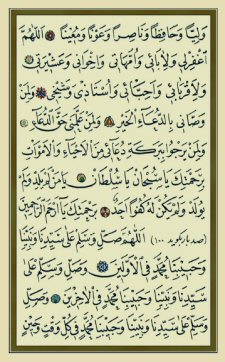 وَلِيًّا وَحَافِظًا وَنَاصِرًا وَعَوْنًا وَمُعِينًا اَللّٰهُمَّ
اغْفِرْلِى وَلِاٰبَائِى وَاُمَّهَاتِى وَاِخْوَانِى وَعَشِيرَتِى
وَلِاَقْرِبَائِى وَاَحِبَّائِى وَاُسْتَاذِى وَشَيْخِى وَلِمَنْ
وَصَّانِى بِالدُّعَاءِ الْخَيْرِ وَلِمَنْ لَهُ عَلَىَّ حَقُّ الدُّعَاءِ
وَلِمَنْ يَرْجُوا بَرَكَةَ دُعَائِى مِنَ الْاَحْيَاءِ وَالْاَمْوَاتِ
بِرَحْمَتِكَ يَا سُبْحَانُ يَا سُلْطَانُ يَا مَنْ لَمْ يَلِدْ وَلَمْ
يُولَدْ وَلَمْ يَكُنْ لَهُ كُفُوًا اَحَدٌ بِرَحْمَتِكَ يَا اَرْحَمَ الرَّاحِمِينَ
اَللّٰهُمَّ صَلِّ وَسَلِّمْ عَلٰى سَيِّدِنَا وَنَبِيِّنَا
وَحَبِيبِنَا مُحَمَّدٍ فِى الْاَوَّلِينَ وَصَلِّ وَسَلِّمْ عَلٰى
سَيِّدِنَا وَنَبِيِّنَا وَحَبِيبِنَا مُحَمَّدٍ فِى الْاٰخِرِينَ وَصَلِّ
وَسَلِّمْ عَلٰى سَيِّدِنَا وَنَبِيِّنَا وَحَبِيبِنَا مُحَمَّدٍ فِى كُلِّ وَقْتٍ وَحِينٍ